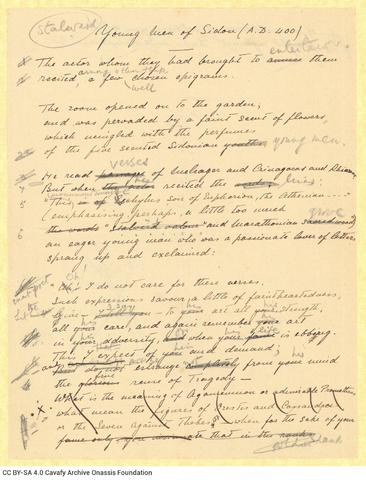 Stalward
Young Men of Sidon (A.D. 400)
entertain
The actor whom they had brought to amuse them
among other things
recited, a few chosen epigrams.
well
The room opened on to the garden;
and was pervaded by a faint scent of flowers,
which mingled with the perfumes
of the five scented Sidonian youths. young men.
verses
He read passage of Meleager and Crinagoras and Rhianus.
But when the actor recited the lines:
"This, is Æschylus son of Euphorion, the Athenian ---"
(emphasising, perhaps, a little too much
grove
the words "Stalward valour" and Marathonian sacred wood)
an eager young man who was a passionate lover of letters
sprang up and exclaimed:
Oh!
I do not care for these verses.
Such expressions savour a little of faintheartedness.
Give - I say - to your all your strength,
all your care, and again remember your art
in your adversity, and when your is ebbing.
This I expect of you and demand;
and do not estrange completely from your mind
the glorious sense of Tragedy —
What is the meaning of Agamemnon or admirable Prometheus,
what mean the figures of Orestes and Cassandra
or the Seven Against Thebes? when for the sake of your
fame only you that in the ranks
CC BY-SA 4.0 Cavafy Archive Onassis Foundation